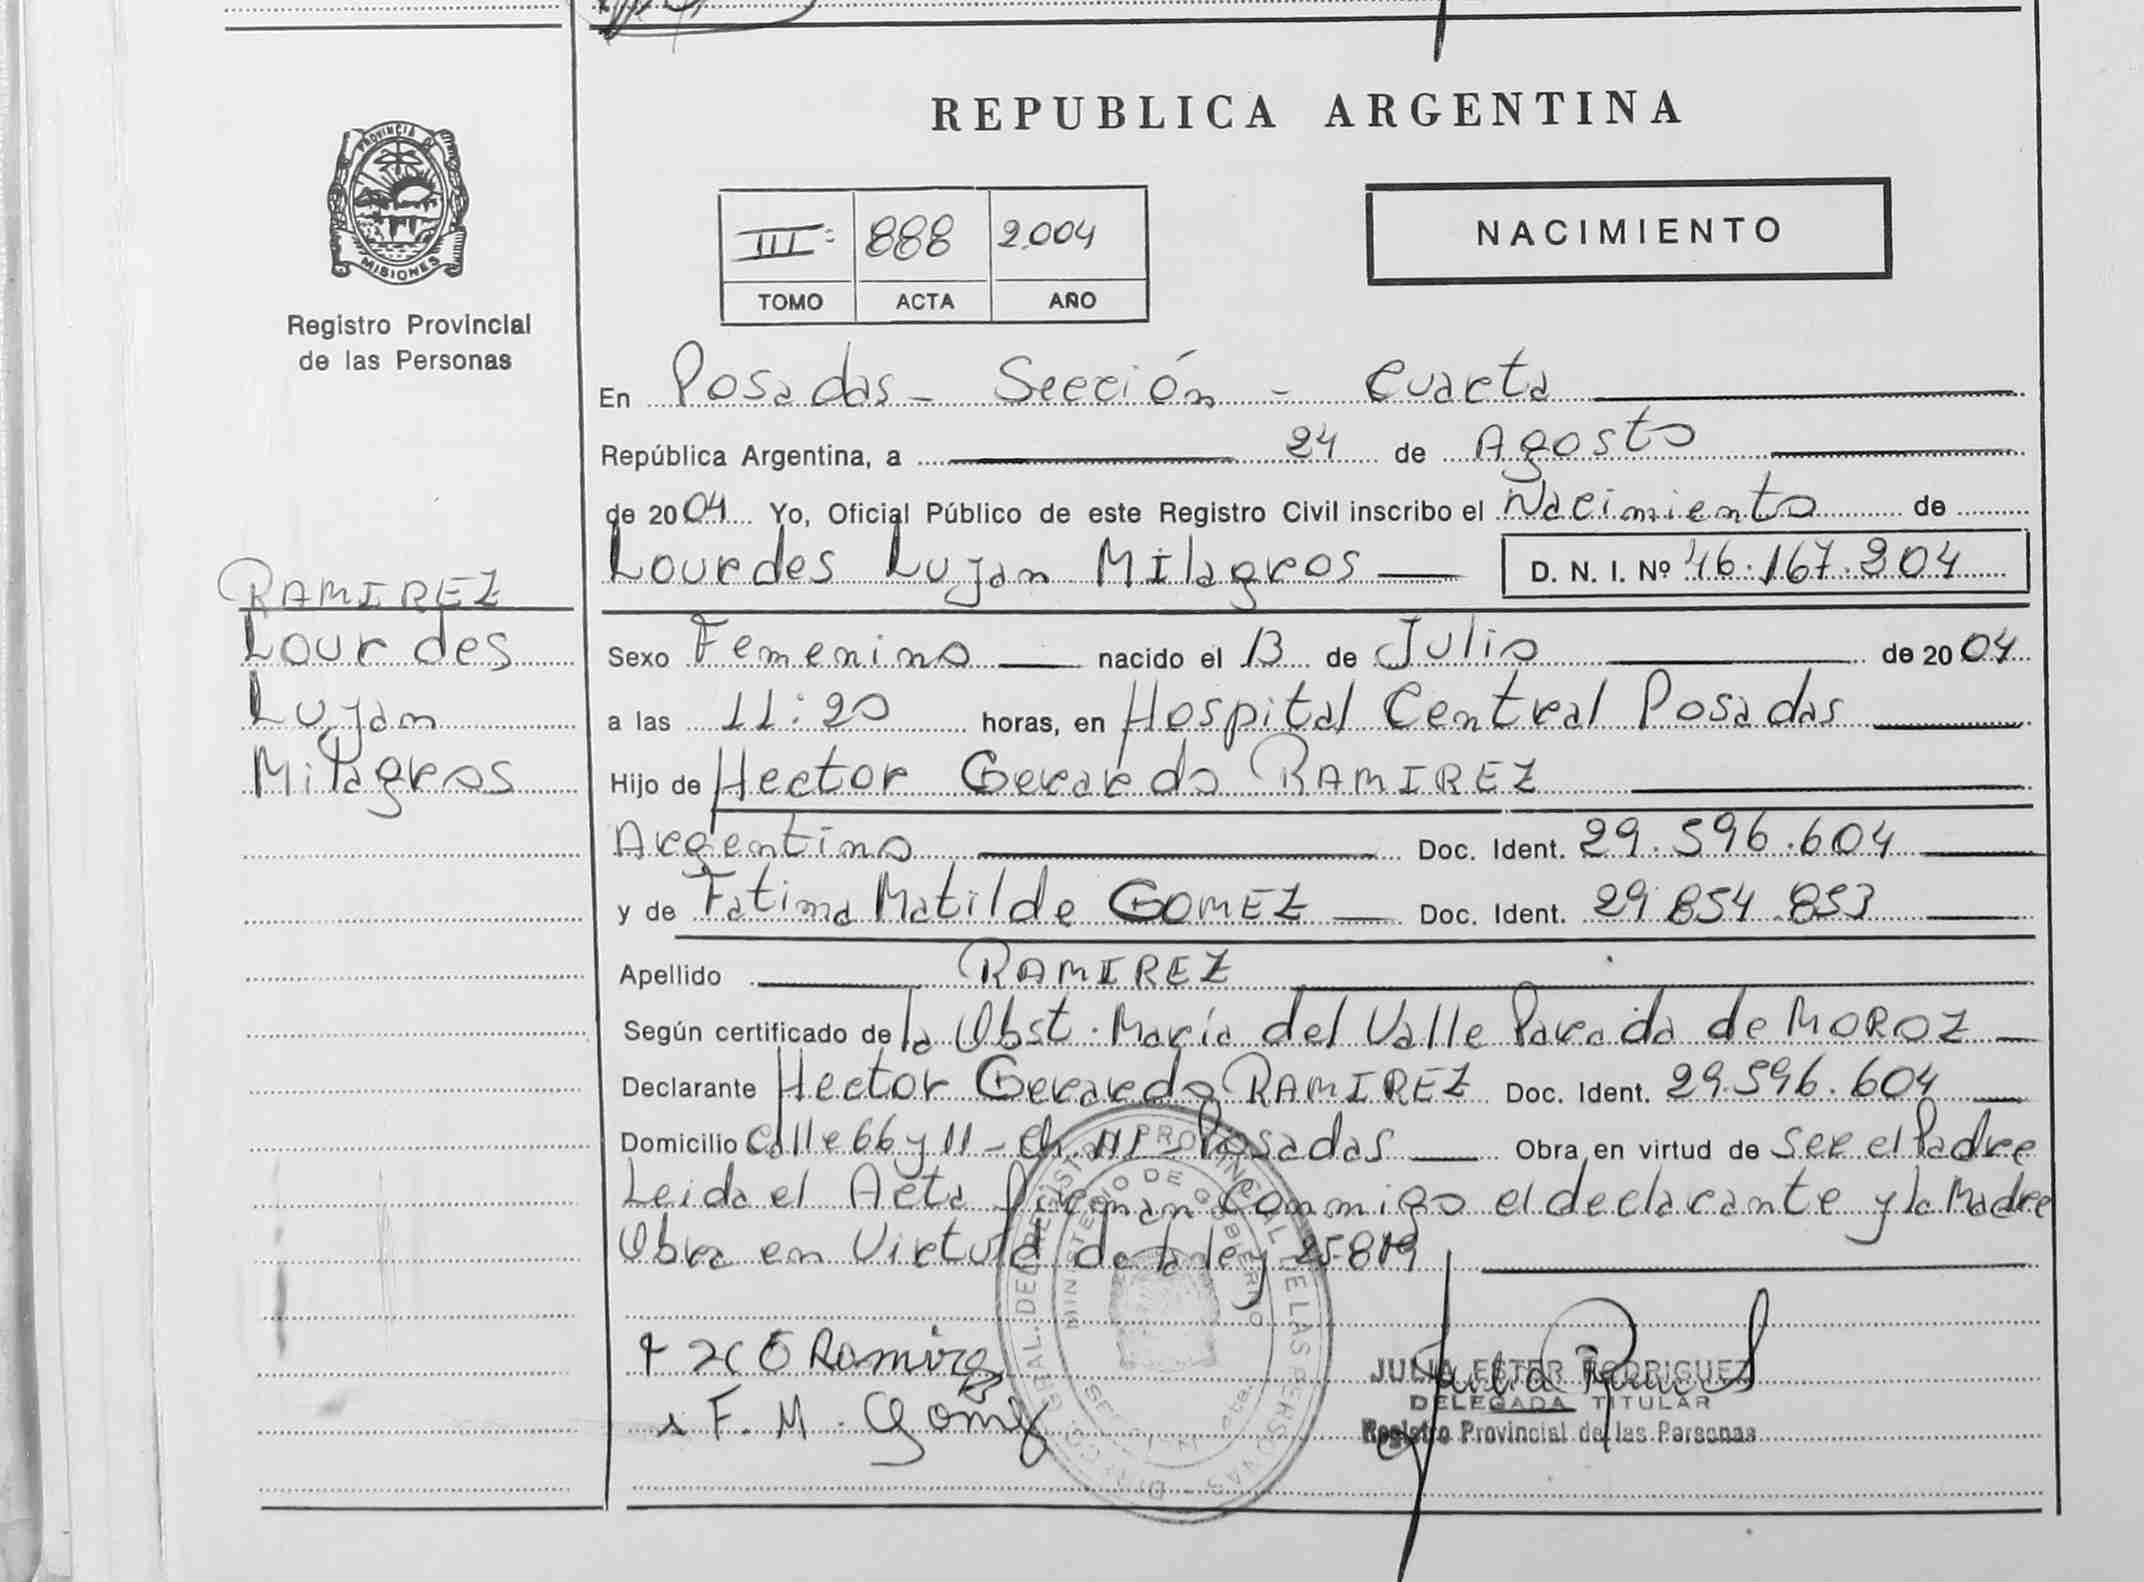 REPUBLICA ARGENTINA
PROVINCIA DE
MISIONES
Registro Provincial
de las Personas
III: 888 2.004
TOMO ACTA AÑO
NACIMIENTO
En Posadas - Sección - Cuarta
República Argentina, a 24 de Agosto
de 2004 Yo, Oficial Público de este Registro Civil inscribo el Nacimiento de
Lourdes Lujan Milagros D. N. I. Nº 46.167.204
RAMIREZ
Lourdes
Lujan
Milagros
Sexo Femenino nacido el 13 de Julio de 2004
a las 11:20 horas, en Hospital Central Posadas
Hijo de Hector Gerardo RAMIREZ
Argentino Doc. Ident. 29.596.604
y de Fatima Matilde GOMEZ Doc. Ident. 29.854.853
Apellido RAMIREZ
Según certificado de la Obst. María del Valle Parada de MOROZ
Declarante Hector Gerardo RAMIREZ Doc. Ident. 29.596.604
Domicilio Calle 66 y 11 - Ch. 111 - Posadas Obra en virtud de ser el Padre
Leida el Acta Firman Conmigo el declarante y la Madre
Obra en Virtud de la ley 25.819
Ramirez
F. M. Gomez
JULIA ESTER RODRIGUEZ
DELEGADA TITULAR
Registro Provincial de las Personas
REGISTRO PROVINCIAL DE LAS PERSONAS
MINISTERIO DE GOBIERNO